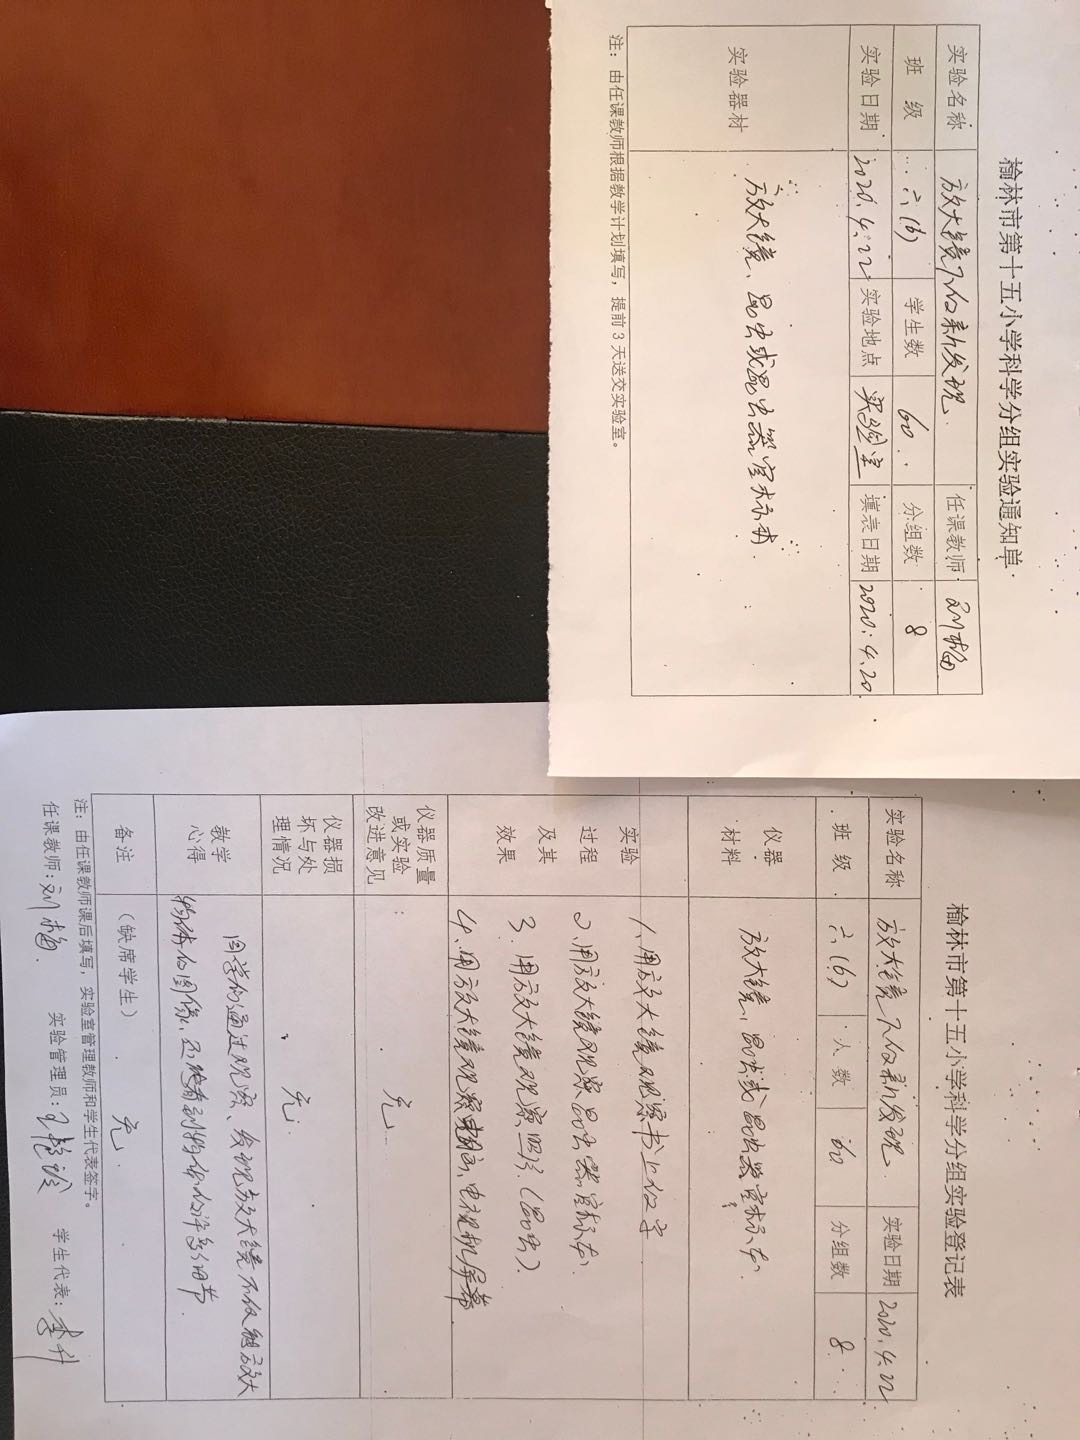 榆林市第十五小学科学分组实验通知单
实验名称 放大镜下的新发现 任课教师 刘梅
班级 六(6) 学生数 60 分组数 8
实验日期 2020.4.22 实验地点 实验室 填表日期 2020.4.20
实验器材 放大镜、昆虫或昆虫器官标本
注：由任课教师根据教学计划填写，提前3天送交实验室。
榆林市第十五小学科学分组实验登记表
实验名称 放大镜下的新发现 实验日期 2020.4.22
班级 六(6) 人数 60 分组数 8
仪器材料 放大镜、昆虫或昆虫器官标本
实验过程及其效果
1、用放大镜观察书上的字
2、用放大镜观察昆虫器官标本
3、用放大镜观察照片(昆虫)
4、用放大镜观察电视机屏幕
仪器质量或实验改进意见 无
仪器损坏与处理情况 无
教学心得 同学们通过观察、发现放大镜不仅能放大
物体的图像、还能看到物体的许多细节
备注 (缺席学生) 无
注：由任课教师课后填写，实验室管理教师和学生代表签字。
任课教师：刘梅 实验管理员： 学生代表：李升